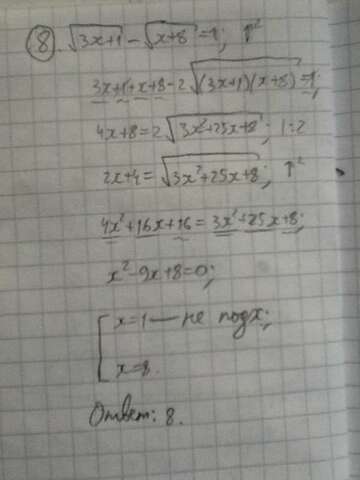 ⑧. √(3x+1) - √(x+8) = 1; ↑²
3x+1+x+8-2√((3x+1)(x+8)) = 1;
4x+8=2√(3x²+25x+8); |:2
2x+4=√(3x²+25x+8); ↑²
4x²+16x+16=3x²+25x+8;
x²-9x+8=0;
[ x=1 — не подх;
x=8.
Ответ: 8.